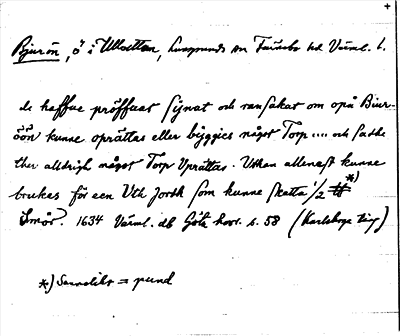 +
Bjurön, ö i Ullvettern, Lungsunds sn Färnebo hd Värml. l.
de haffue pröffuat synat och ransakat om opå Biur-
öön kunne oprättas eller byggies något Torp .... och sadhe
ther alldrigh något Torp Uprättas. Uthan allenast kunne
brukas för een Uth Jordh som kunne skatta 1/2 ℔ *)
Smör. 1634 Värml. db Göta hovr. s. 58 (Karlskoga ting)
*) Sannolikt = pund